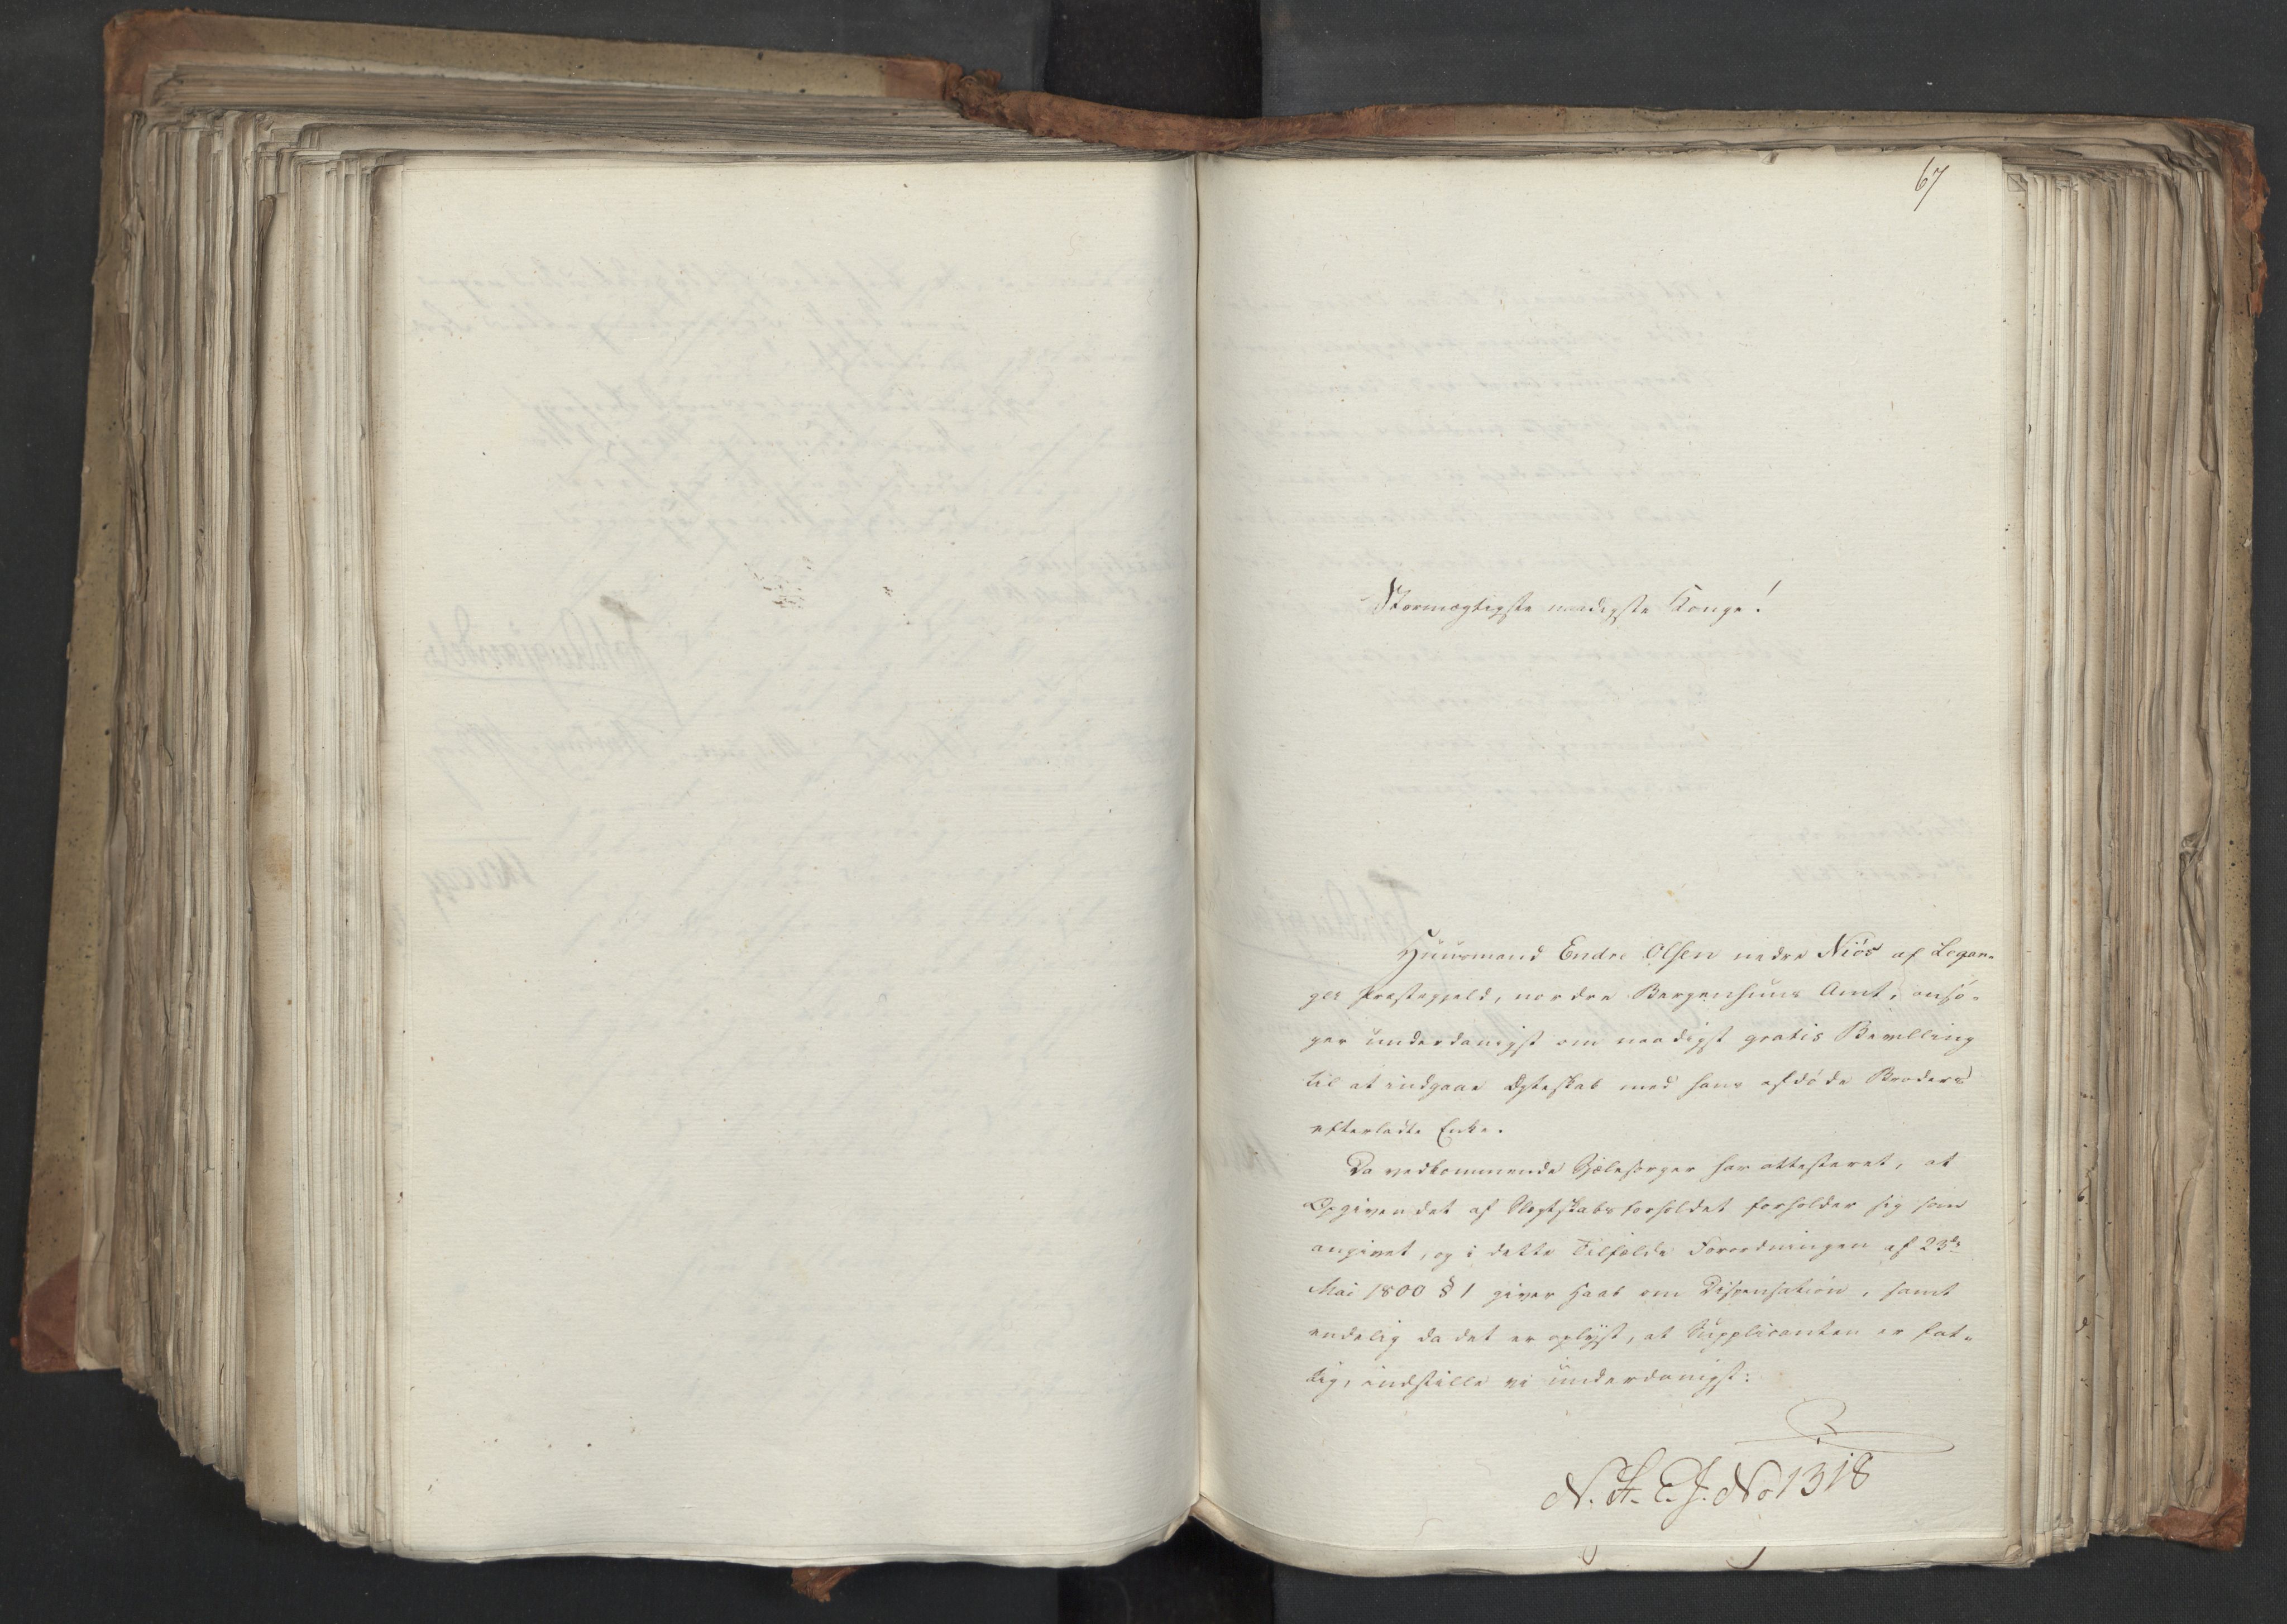 67
Stormægtigste naadigste Konge!
Huusmand Endre Olsen nedre Niøs af Legan-
ger Præstegjeld, nordre Bergenhuus Amt, ansø-
ger underdanigst om naadigst gratis Bevilling
til at indgaae Ægteskab med hans afdøde Broders
efterladte Enke.
Da vedkommende Sjælesørger har attesteret, at
Opgivendet af Slægtskabsforholdet forholder sig som
angivet, og i dette Tilfælde Forordningen af 23de
Mai 1800 § 1 giver Haab om Dispensation, samt
endelig da det er oplyst, at Supplicanten er fat-
tig, indstille vi underdanigst:
N. St. E. J. No 1318